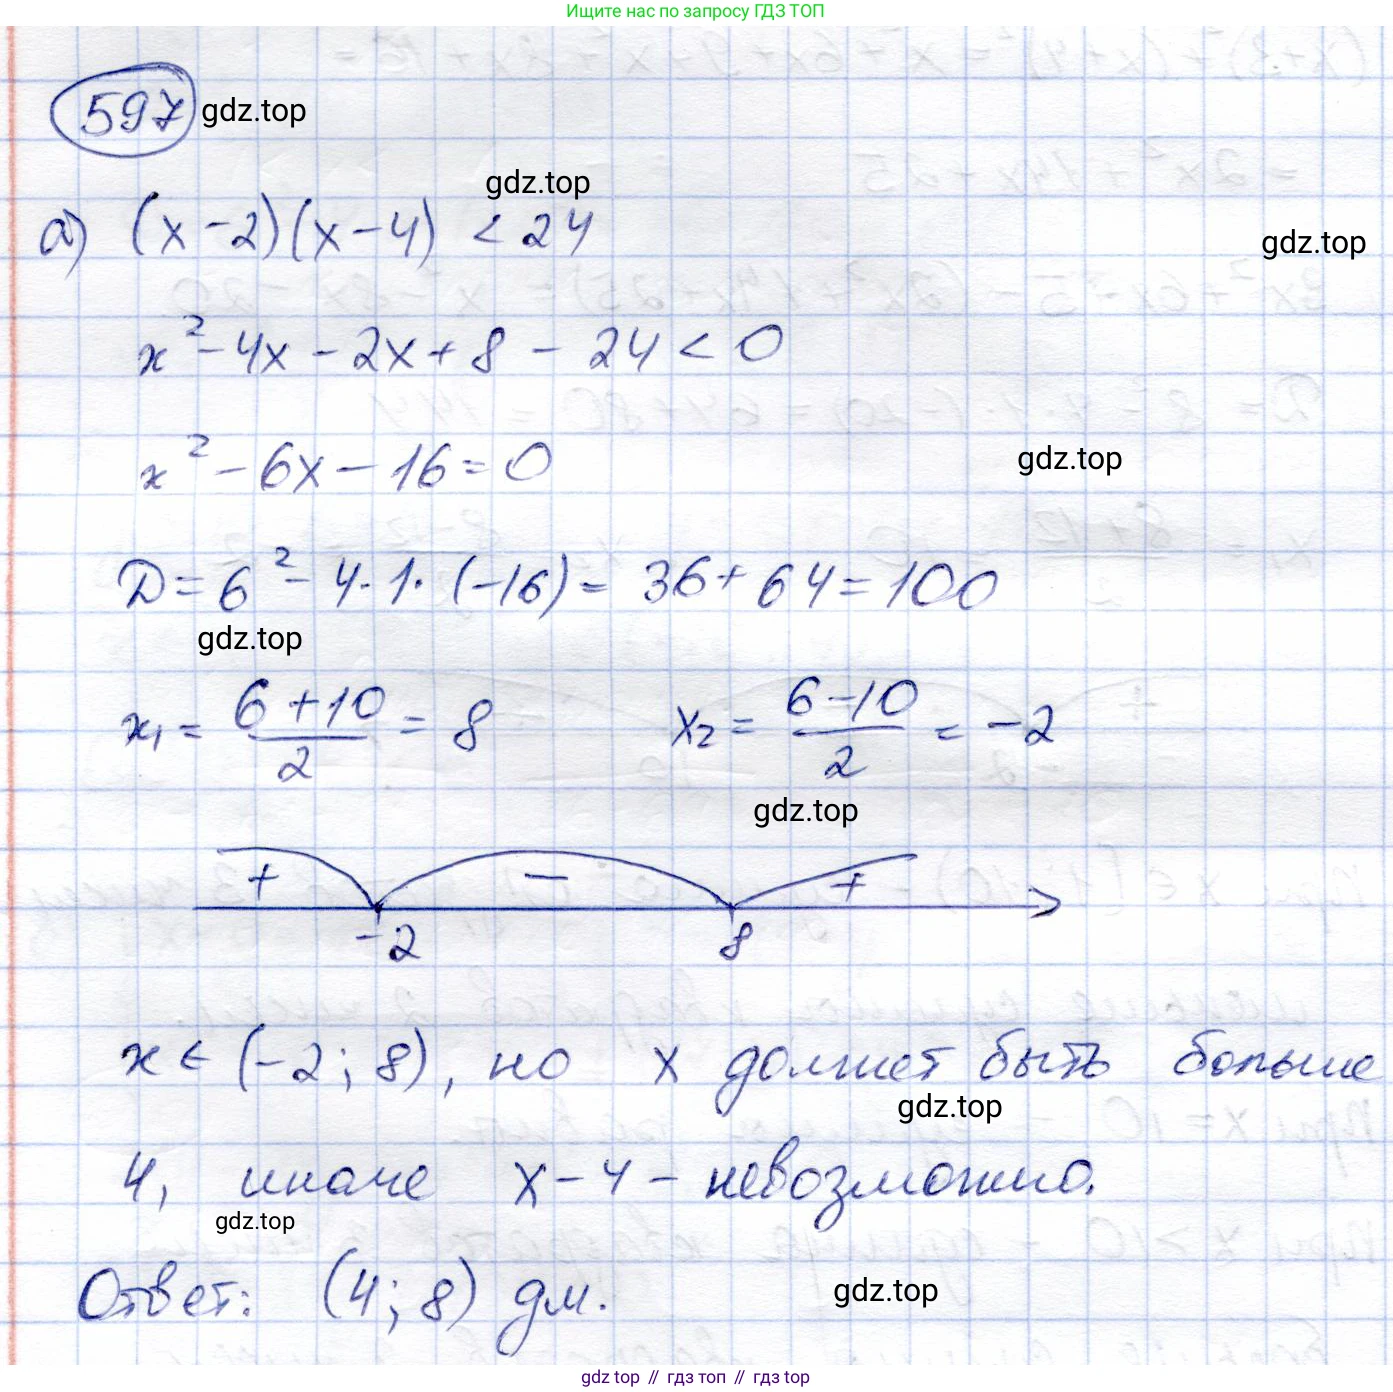 Ищите нас по запросу ГДЗ ТОП
597 gdz.top
gdz.top
а) (x-2)(x-4) < 24
gdz.top
x²-4x-2x+8-24<0
x²-6x-16=0
gdz.top
D=6²-4·1·(-16)=36+64=100
gdz.top
x₁=(6+10)/2=8 x₂=(6-10)/2=-2
gdz.top
+ - +
-2 8
x∈(-2;8), но x должет быть больше
gdz.top
4, иначе x-4-невозможно.
gdz.top
Ответ: (4;8) дм.
gdz.top
gdz top // гдз топ // гдз top